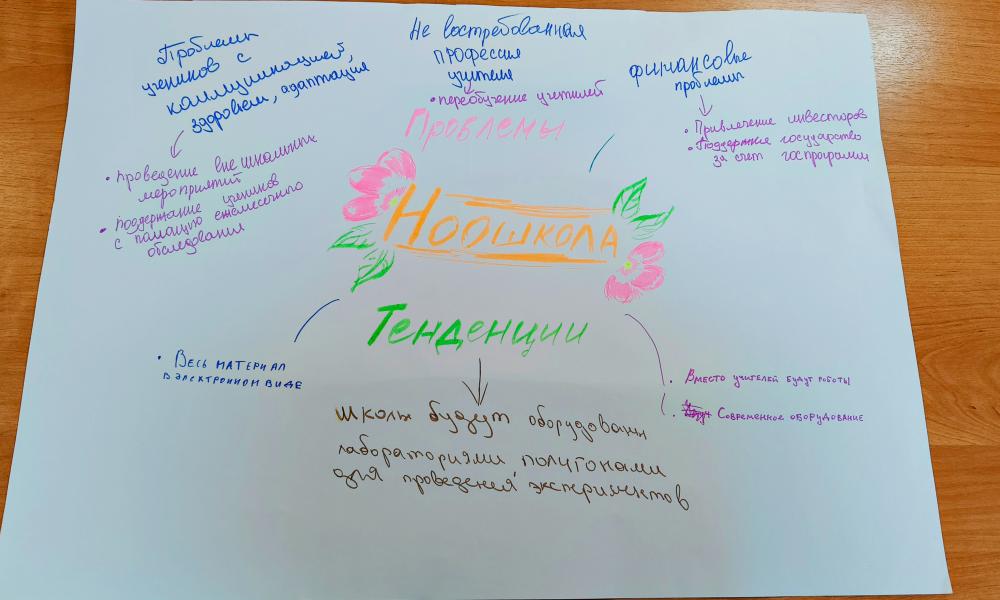 Проблемы
учеников с
коммуникацией,
здоровьем, адаптация
• Проведение внешкольных
мероприятий
• Поддержание учеников
с помащью ежемесячного
обследования
Не востребованная
профессия
учителя
• переобучение учителей
финансовые
проблемы
• Привлечение инвесторов
• Поддержка государства
за счет госпрограмм
Проблемы
Ноошкола
Тенденции
• Весь материал
в электронном виде
школы будут оборудованы
лабораториями, полигонами
для проведения экспериментов
• Вместо учителей будут роботы
• Современное оборудование